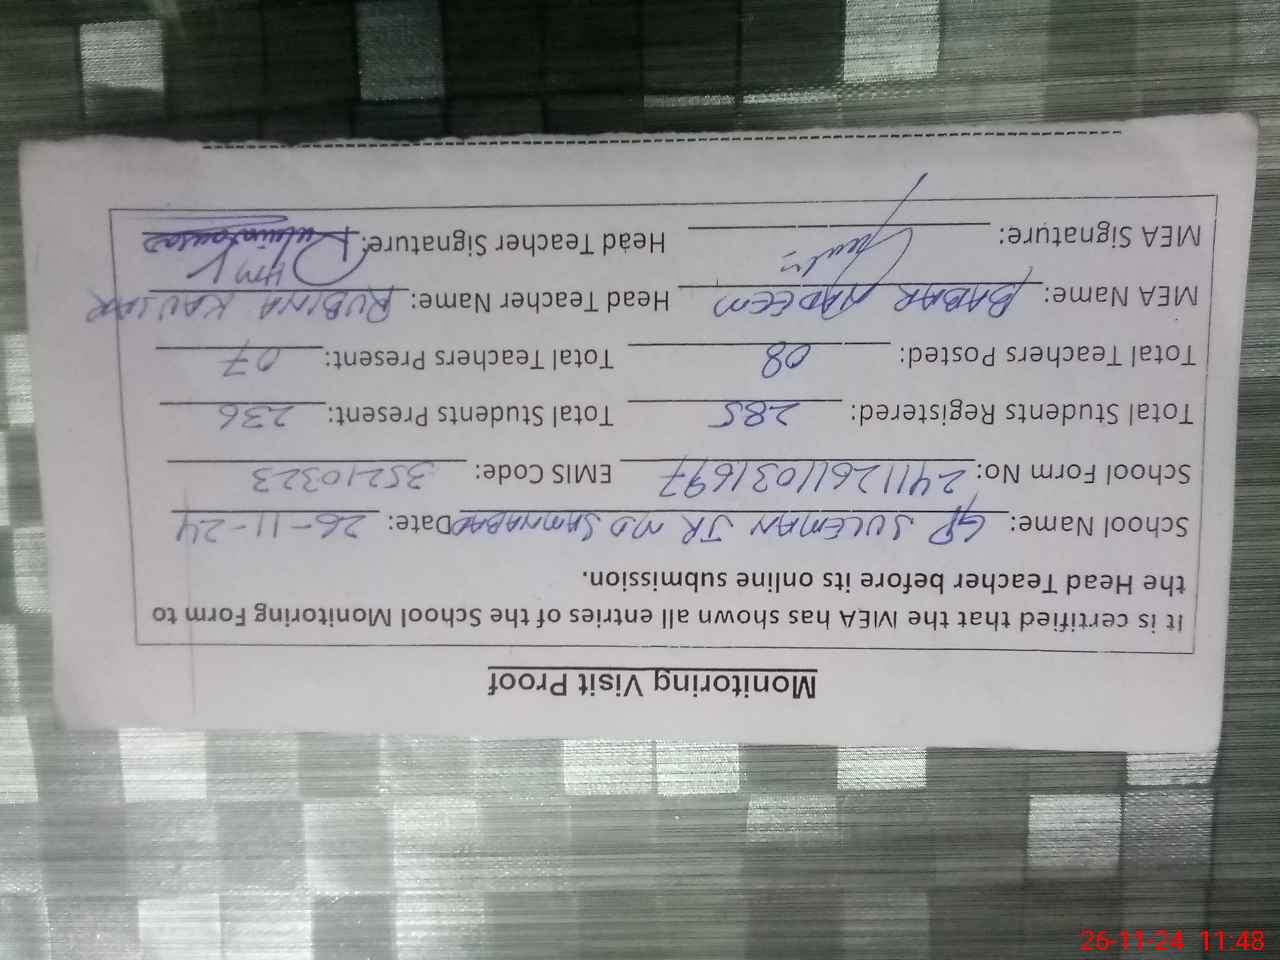 Monitoring Visit Proof
It is certified that the MEA has shown all entries of the School Monitoring Form to
the Head Teacher before its online submission.
School Name: GP SULEMAN JR MD SAMNABAD Date: 26-11-24
School Form No: 24112611031697 EMIS Code: 35210323
Total Students Registered: 285 Total Students Present: 236
Total Teachers Posted: 08 Total Teachers Present: 07
MEA Name: BABAR NADEEM Head Teacher Name: RUBINA KAUSAR
MEA Signature: Head Teacher Signature: HM
26-11-24 11:48